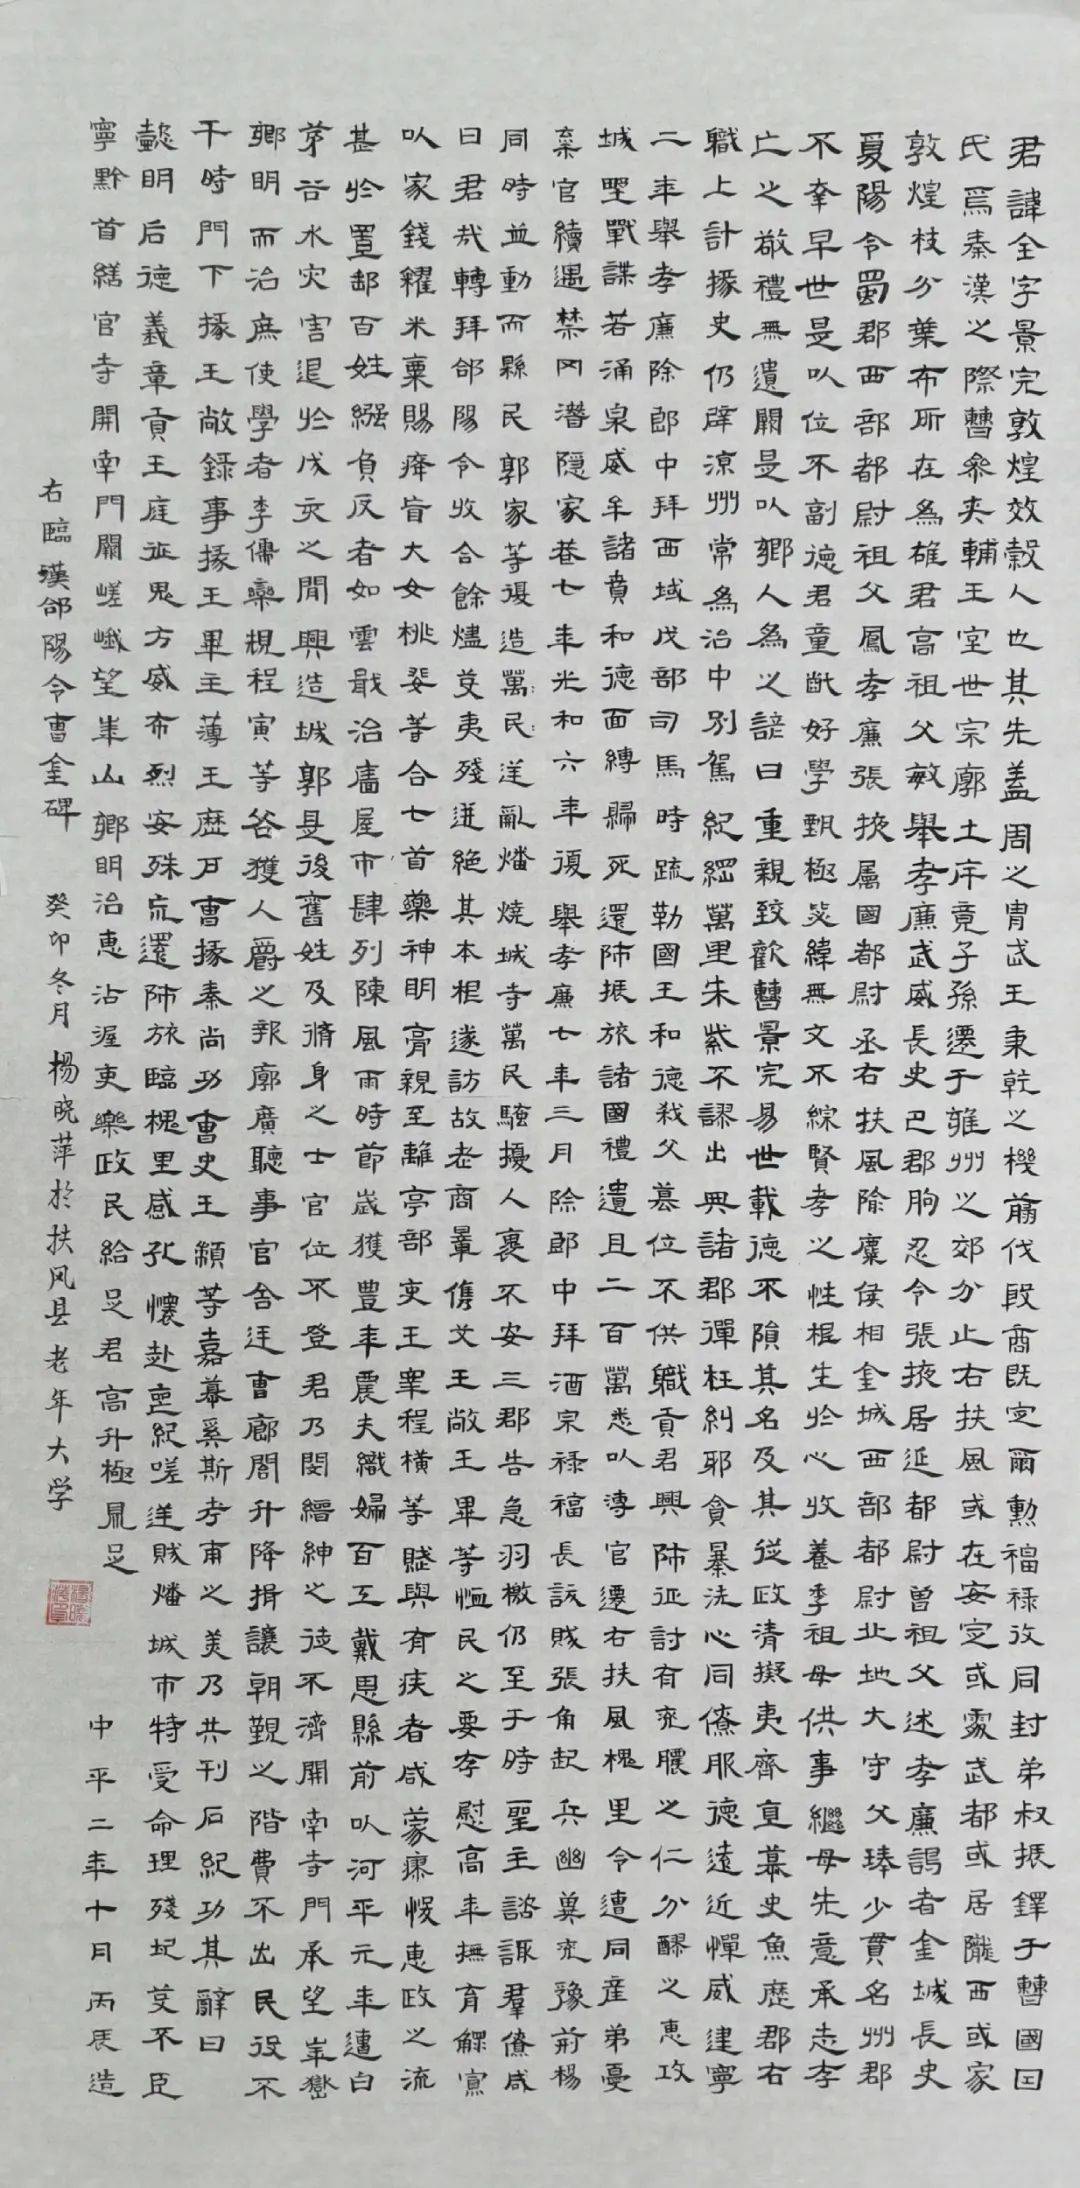 君諱全字景完敦煌效穀人也其先蓋周之冑武王秉乾之機翦伐殷商既定爾勳福祿攸同封弟叔振鐸于曹國因
氏焉秦漢之際曹參夾輔王室世宗廓土斥竟子孫遷于雍州之郊分止右扶風或在安定或處武都或居隴西或家
敦煌枝分葉布所在為雄君高祖父敏舉孝廉武威長史巴郡朐忍令張掖居延都尉曾祖父述孝廉謁者金城長史
夏陽令蜀郡西部都尉祖父鳳孝廉張掖屬國都尉丞右扶風隃麋侯相金城西部都尉北地大守父琫少貫名州郡
不幸早世是以位不副德君童齔好學甄極毖緯無文不綜賢孝之性根生於心收養季祖母供事繼母先意承志存
亡之敬禮無遺闕是以鄉人為之諺曰重親致歡曹景完易世載德不隕其名及其從政清擬夷齊直慕史魚歷郡右
職上計掾史仍辟涼州常為治中別駕紀綱萬里朱紫不謬出典諸郡彈枉糾邪貪暴洗心同僚服德遠近憚威建寧
二年舉孝廉除郎中拜西域戊部司馬時疏勒國王和德弒父篡位不供職貢君興師征討有兗膿之仁分醪之惠攻
城野戰謀若涌泉威牟諸賁和德面縛歸死還師振旅諸國禮遺且二百萬悉以薄官遷右扶風槐里令遭同產弟憂
棄官續遇禁冈潛隱家巷七年光和六年復舉孝廉七年三月除郎中拜酒泉祿福長訞賊張角起兵幽冀兗豫荊楊
同時並動而縣民郭家等復造萬民逆亂燔燒城寺萬民騷擾人裹不安三郡告急羽檄仍至于時聖主諮諏羣僚咸
曰君哉轉拜郃陽令收合餘燼芟夷殘迸絕其本根遂訪故老商量儁艾王敞王畢等恤民之要存慰高年撫育鰥寡
以家錢糴米粟賜癃盲大女桃婓等合七首藥神明膏親至離亭部吏王宰程橫等賦與有疾者咸蒙瘳悛惠政之流
甚於置郵百姓繈負反者如雲戢治廧屋市肆列陳風雨時節歲獲豐年農夫織婦百工戴恩縣前以河平元年遭白
茅谷水灾害退於戌亥之間興造城郭是後舊姓及脩身之士官位不登君乃閔縉紳之徒不濟開南寺門承望華嶽
鄉明而治庶使學者李儒欒規程寅等各獲人爵之報廓廣聽事官舍廷曹廊閣升降揖讓朝覲之階費不出民役不
干時門下掾王敞錄事掾王畢主薄王歷戶曹掾秦尚功曹史王顓等嘉慕奚斯考甫之美乃共刊石紀功其辭曰
懿明后德義章貢王庭征鬼方威布烈安殊荒還師旅臨槐里感孔懷赴喪紀嗟逆賊燔城市特受命理殘圮芟不臣
寧黔首繕官寺開南門闕嵯峨望華山鄉明治惠沾渥吏樂政民給足君高升極鼎足 中平二年十月丙辰造
右臨漢郃陽令曹全碑 癸卯冬月楊晓萍於扶风县老年大学